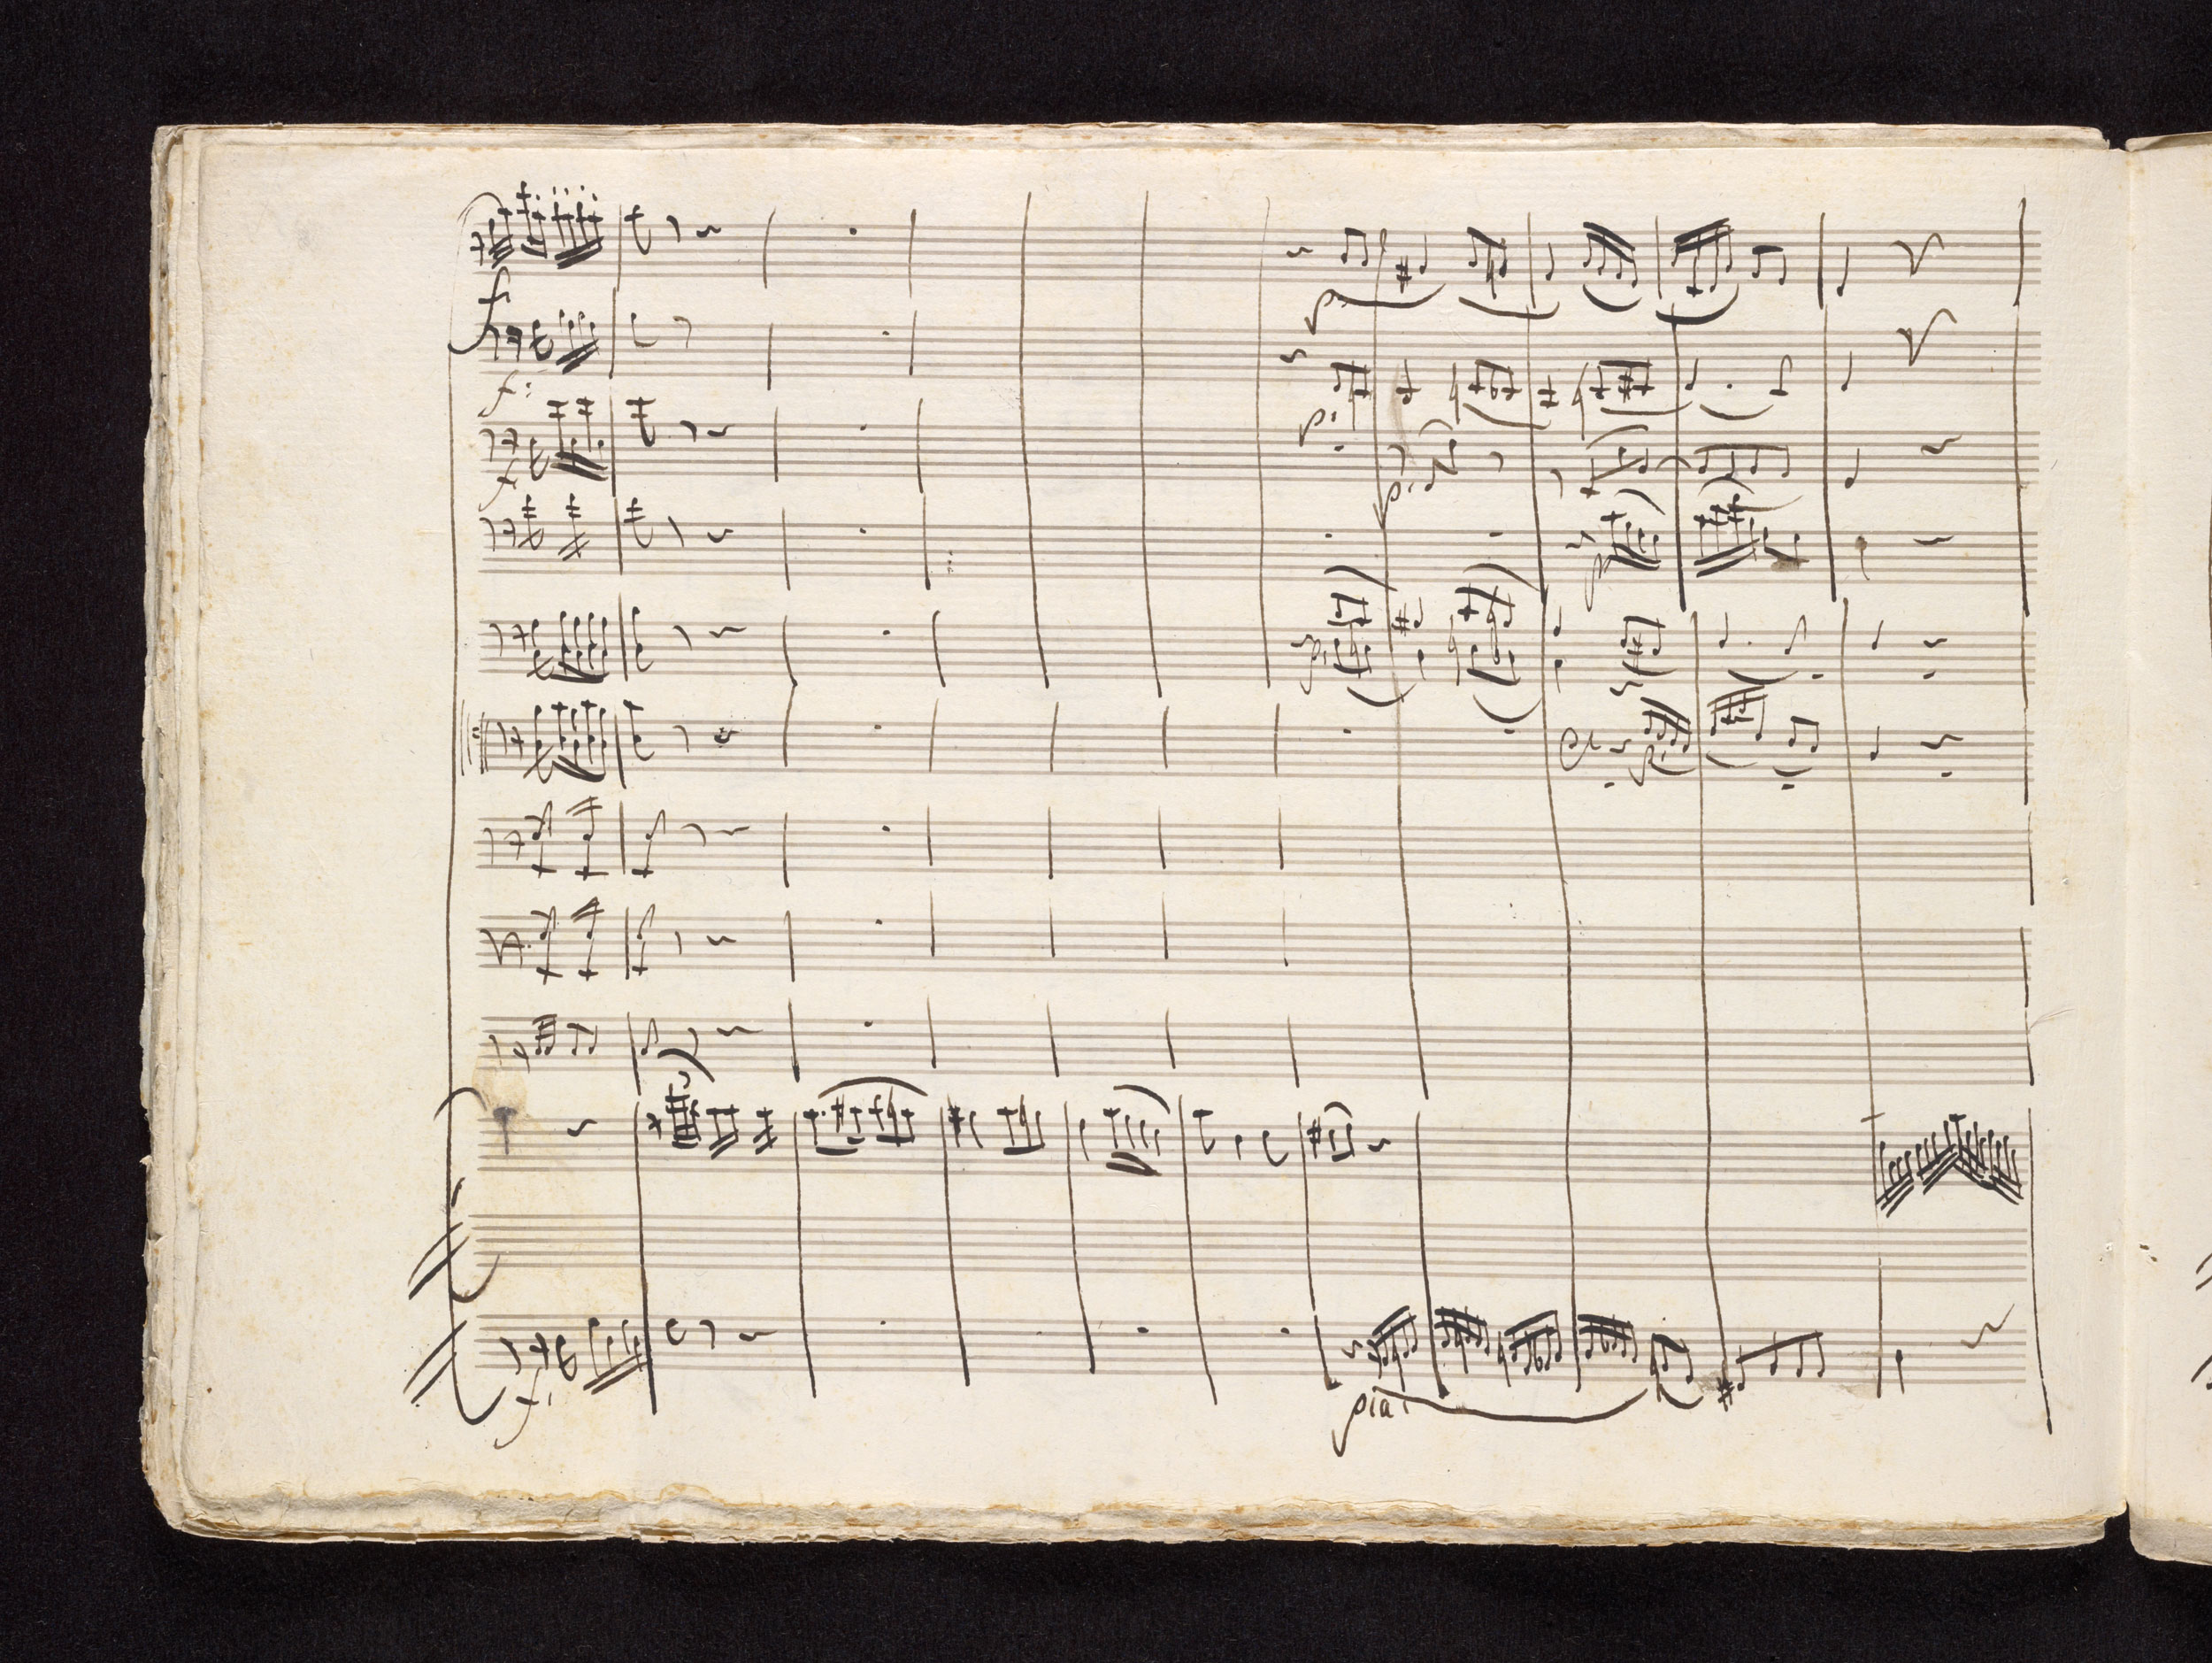 f
f:
p:
f
p:
p:
p
p:
p:
f:
pia: